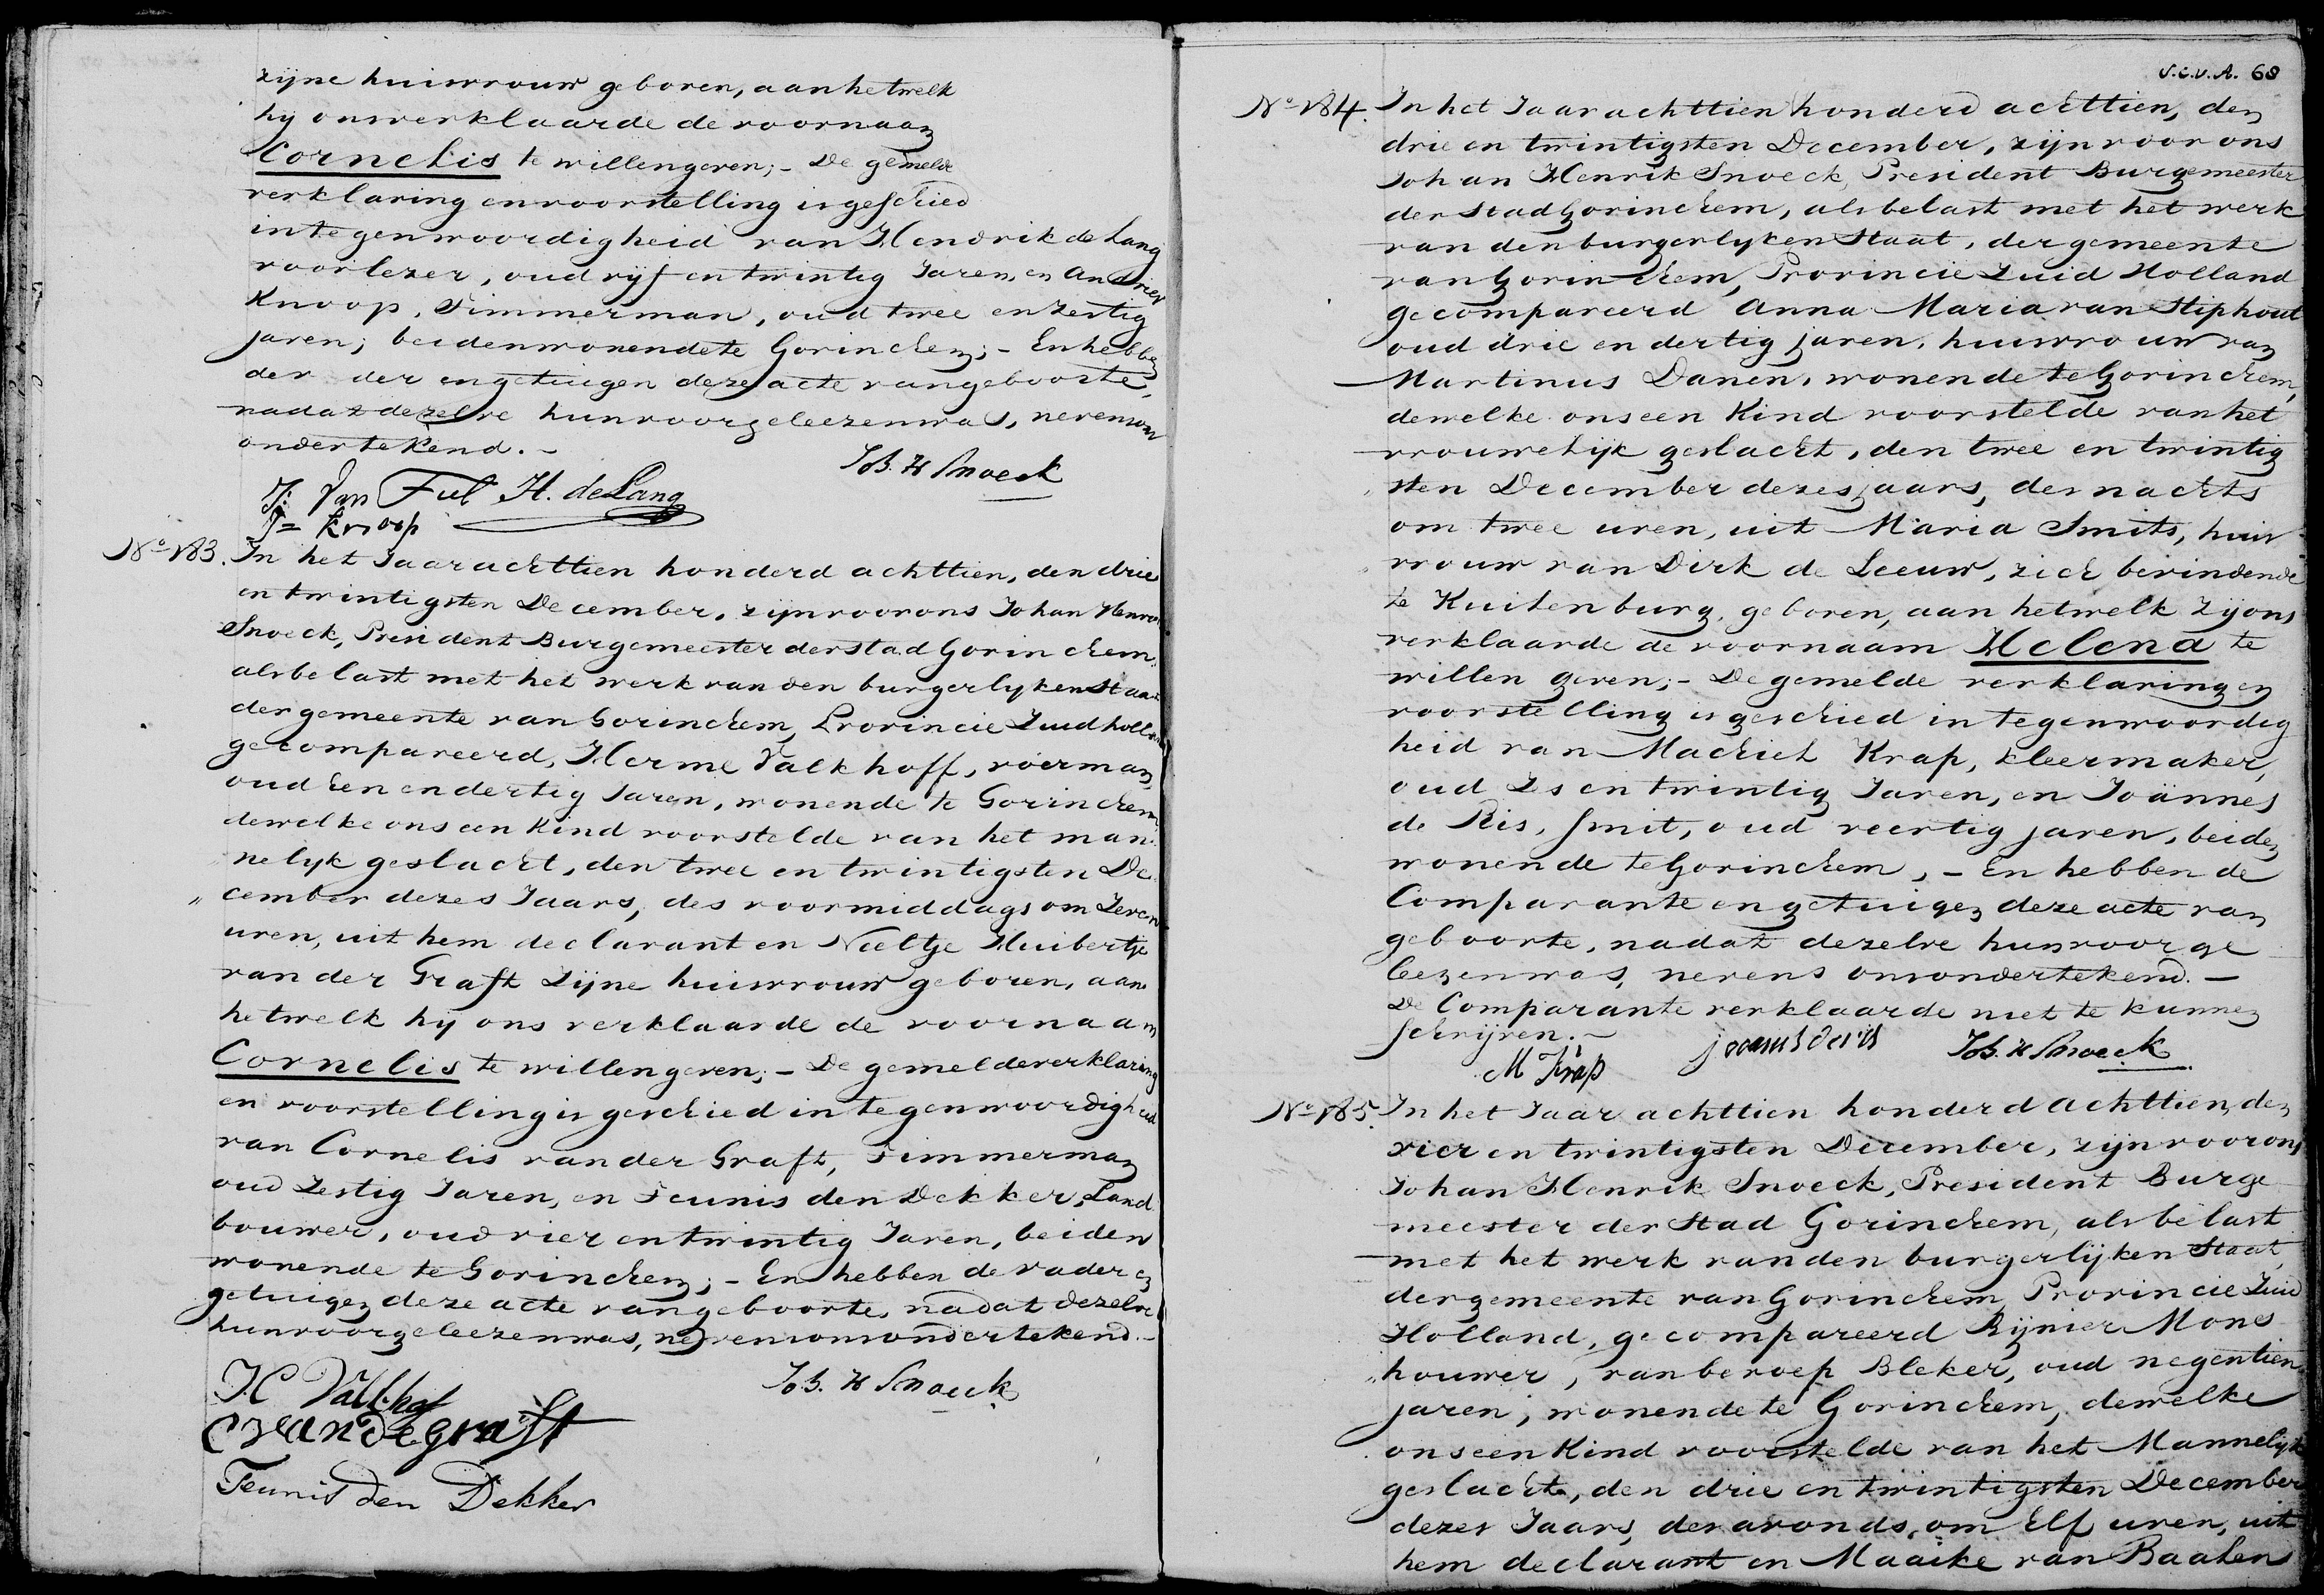 zijne huisvrouw geboren, aan hetwelk
hy ons verklaarde de voornaam
Cornelis te willen geven; - De gemelde
verklaring en voorstelling is geschied
in tegenwoordigheid van Hendrik de Lang
voorlezer, oud vijf en twintig Jaren, en Andries
Knoop, Timmerman, oud twee en zestig
jaren; beiden wonende te Gorinchem; - En hebben
der en getuigen deze acte van geboorte,
nadat dezelve hun voorgeleezen was, nevens ons
ondertekend. -
Joh. H Snoeck
J: Van Tuil H. de Lang
Knoop
No 183. In het Jaar achttien honderd achttien, den drie
en twintigsten December, zijn voor ons Johan Henrik
Snoeck, President Burgemeester der stad Gorinchem,
als belast met het werk van den burgerlyken Staat
der gemeente van Gorinchem, Provincie Zuid holland
gecompareerd, Herme Valkhoff, voerman,
oud een en dertig Jaren, wonende te Gorinchem
dewelke ons een Kind voorstelde van het man-
nelyk geslacht, den twee en twintigsten De-
cember dezes Jaars, des voormiddags om Zeven
uren, uit hem declarant en Neeltje Huibertje
van der Graft Zijne huisvrouw geboren, aan
hetwelk hij ons verklaarde de voornaam
Cornelis te willen geven; - De gemelde verklaring
en voorstelling is geschied in tegenwoordigheid
van Cornelis van der Graft, Timmerman
oud Zestig Jaren, en Teunis den Dekker, Land
bouwer, oud vier en twintig Jaren, beiden
wonende te Gorinchem; - En hebben de vader en
getuigen deze acte van geboorte, nadat dezelve
hun voorgeleezen was, nevens ons ondertekend. -
H Valkhof Joh. H Snoeck
C van de graft
Teunis den Dekker
S.C.V.A. 68
No 184. In het Jaar achttien honderd achttien, den
drie en twintigsten December, zijn voor ons
Johan Henrik Snoeck, President Burgemeester
der Stad Gorinchem, als belast met het werk
van den burgerlyken Staat, der gemeente
van Gorinchem, Provincie Zuid Holland
gecompareerd Anna Maria van Stiphout
oud drie en dertig jaren, huisvrouw van
Martinus Danen, wonende te Gorinchem,
dewelke ons een Kind voorstelde van het
vrouwelijk geslacht, den twee en twintig
sten December dezes jaars, des nachts
om twee uren, uit Maria Smits, huis-
vrouw van Dirk de Leeuw, zich bevindende
te Kuilenburg, geboren, aan hetwelk Zij ons
verklaarde de voornaam Helena te
willen geven; - De gemelde verklaring en
voorstelling is geschied in tegenwoordig
heid van Machiel Krap, kleermaker,
oud Zes en twintig Jaren, en Joännes
de Ris, Smit, oud veertig jaren, beiden
wonende te Gorinchem, - En hebben de
Comparante en getuigen deze acte van
geboorte, nadat dezelve hun voor ge
leezen was, nevens ons ondertekend. -
De Comparante verklaarde niet te kunnen
schrijven. -
M Krap Joh. H Snoeck
No 185. In het Jaar achttien honderd achttien, den
vier en twintigsten December, zijn voor ons
Johan Henrik Snoeck, President Burge
meester der Stad Gorinchem, als belast
met het werk van den burgerlijken Staat,
der gemeente van Gorinchem, Provincie Zuid
Holland, gecompareerd Rijnier Mons
houwer, van beroep Bleker, oud negentien
jaren, wonende te Gorinchem, dewelke
ons een Kind voorstelde van het Mannelijk
geslacht, den drie en twintigsten December
dezes Jaars, des avonds, om Elf uren, uit
hem declarant en Maaike van Baalen